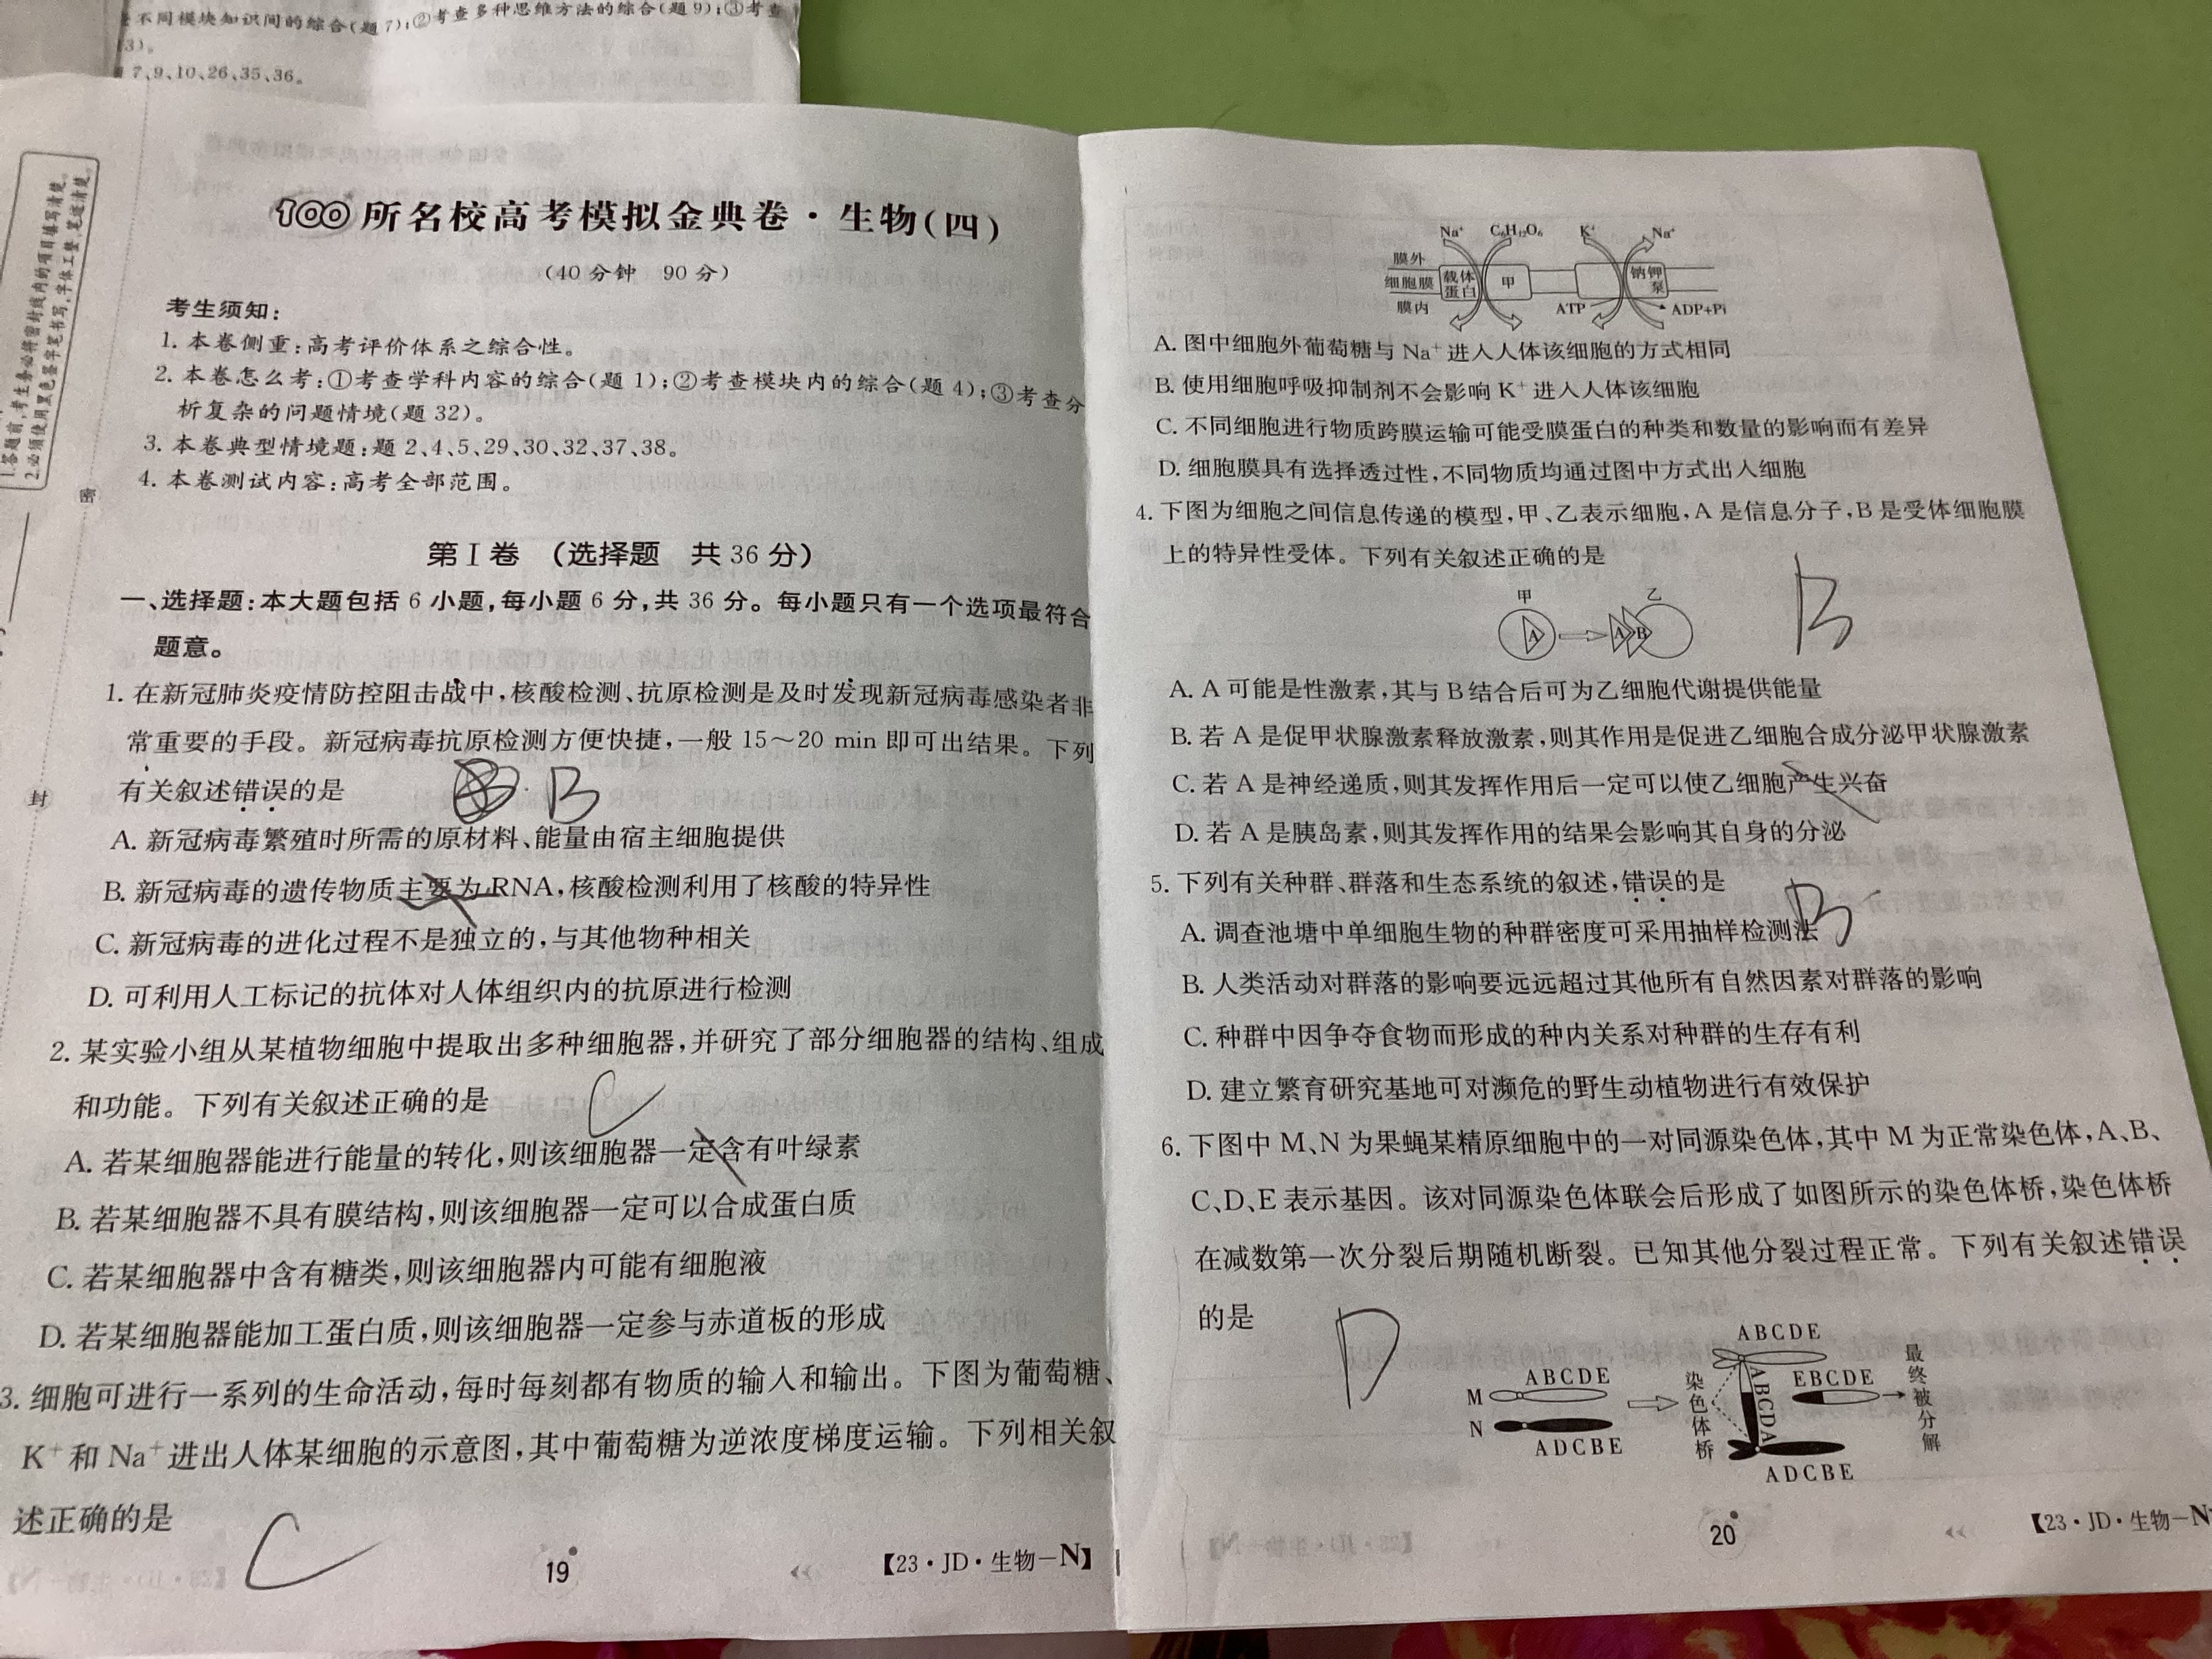 不同模块知识间的综合(题7);②考查多种思维方法的综合(题9);③考查
3)。
7、9、10、26、35、36。
1.答题前,考生务必将密封线内的项目填写清楚。
2.必须使用黑色签字笔书写,字体工整、笔迹清楚。
密
封
100所名校高考模拟金典卷·生物(四)
(40分钟 90分)
考生须知:
1. 本卷侧重:高考评价体系之综合性。
2. 本卷怎么考:①考查学科内容的综合(题1);②考查模块内的综合(题4);③考查分
析复杂的问题情境(题32)。
3. 本卷典型情境题:题2、4、5、29、30、32、37、38。
4. 本卷测试内容:高考全部范围。
第Ⅰ卷 (选择题 共36分)
一、选择题:本大题包括6小题,每小题6分,共36分。每小题只有一个选项最符合
题意。
1. 在新冠肺炎疫情防控阻击战中,核酸检测、抗原检测是及时发现新冠病毒感染者非
常重要的手段。新冠病毒抗原检测方便快捷,一般15～20 min即可出结果。下列
有关叙述错误的是
B
A. 新冠病毒繁殖时所需的原材料、能量由宿主细胞提供
B. 新冠病毒的遗传物质主要为RNA,核酸检测利用了核酸的特异性
C. 新冠病毒的进化过程不是独立的,与其他物种相关
D. 可利用人工标记的抗体对人体组织内的抗原进行检测
2. 某实验小组从某植物细胞中提取出多种细胞器,并研究了部分细胞器的结构、组成
和功能。下列有关叙述正确的是
C
A. 若某细胞器能进行能量的转化,则该细胞器一定含有叶绿素
B. 若某细胞器不具有膜结构,则该细胞器一定可以合成蛋白质
C. 若某细胞器中含有糖类,则该细胞器内可能有细胞液
D. 若某细胞器能加工蛋白质,则该细胞器一定参与赤道板的形成
3. 细胞可进行一系列的生命活动,每时每刻都有物质的输入和输出。下图为葡萄糖、
K⁺和Na⁺进出人体某细胞的示意图,其中葡萄糖为逆浓度梯度运输。下列相关叙
述正确的是
C
19
【23·JD·生物-N】
Na⁺ C₆H₁₂O₆ K⁺ Na⁺
膜外
细胞膜 载体蛋白 甲 钠钾泵
膜内 ATP ADP+Pi
A. 图中细胞外葡萄糖与Na⁺进入人体该细胞的方式相同
B. 使用细胞呼吸抑制剂不会影响K⁺进入人体该细胞
C. 不同细胞进行物质跨膜运输可能受膜蛋白的种类和数量的影响而有差异
D. 细胞膜具有选择透过性,不同物质均通过图中方式出入细胞
4. 下图为细胞之间信息传递的模型,甲、乙表示细胞,A是信息分子,B是受体细胞膜
上的特异性受体。下列有关叙述正确的是
B
甲 乙
A A B
A. A可能是性激素,其与B结合后可为乙细胞代谢提供能量
B. 若A是促甲状腺激素释放激素,则其作用是促进乙细胞合成分泌甲状腺激素
C. 若A是神经递质,则其发挥作用后一定可以使乙细胞产生兴奋
D. 若A是胰岛素,则其发挥作用的结果会影响其自身的分泌
5. 下列有关种群、群落和生态系统的叙述,错误的是
B
A. 调查池塘中单细胞生物的种群密度可采用抽样检测法
B. 人类活动对群落的影响要远远超过其他所有自然因素对群落的影响
C. 种群中因争夺食物而形成的种内关系对种群的生存有利
D. 建立繁育研究基地可对濒危的野生动植物进行有效保护
6. 下图中M、N为果蝇某精原细胞中的一对同源染色体,其中M为正常染色体,A、B、
C、D、E表示基因。该对同源染色体联会后形成了如图所示的染色体桥,染色体桥
在减数第一次分裂后期随机断裂。已知其他分裂过程正常。下列有关叙述错误
的是
D
ABCDE
M
N
ADCBE
染色体桥
ABCDE
ABCDA
EBCDE
ADCBE
最终被分解
20
【23·JD·生物-N